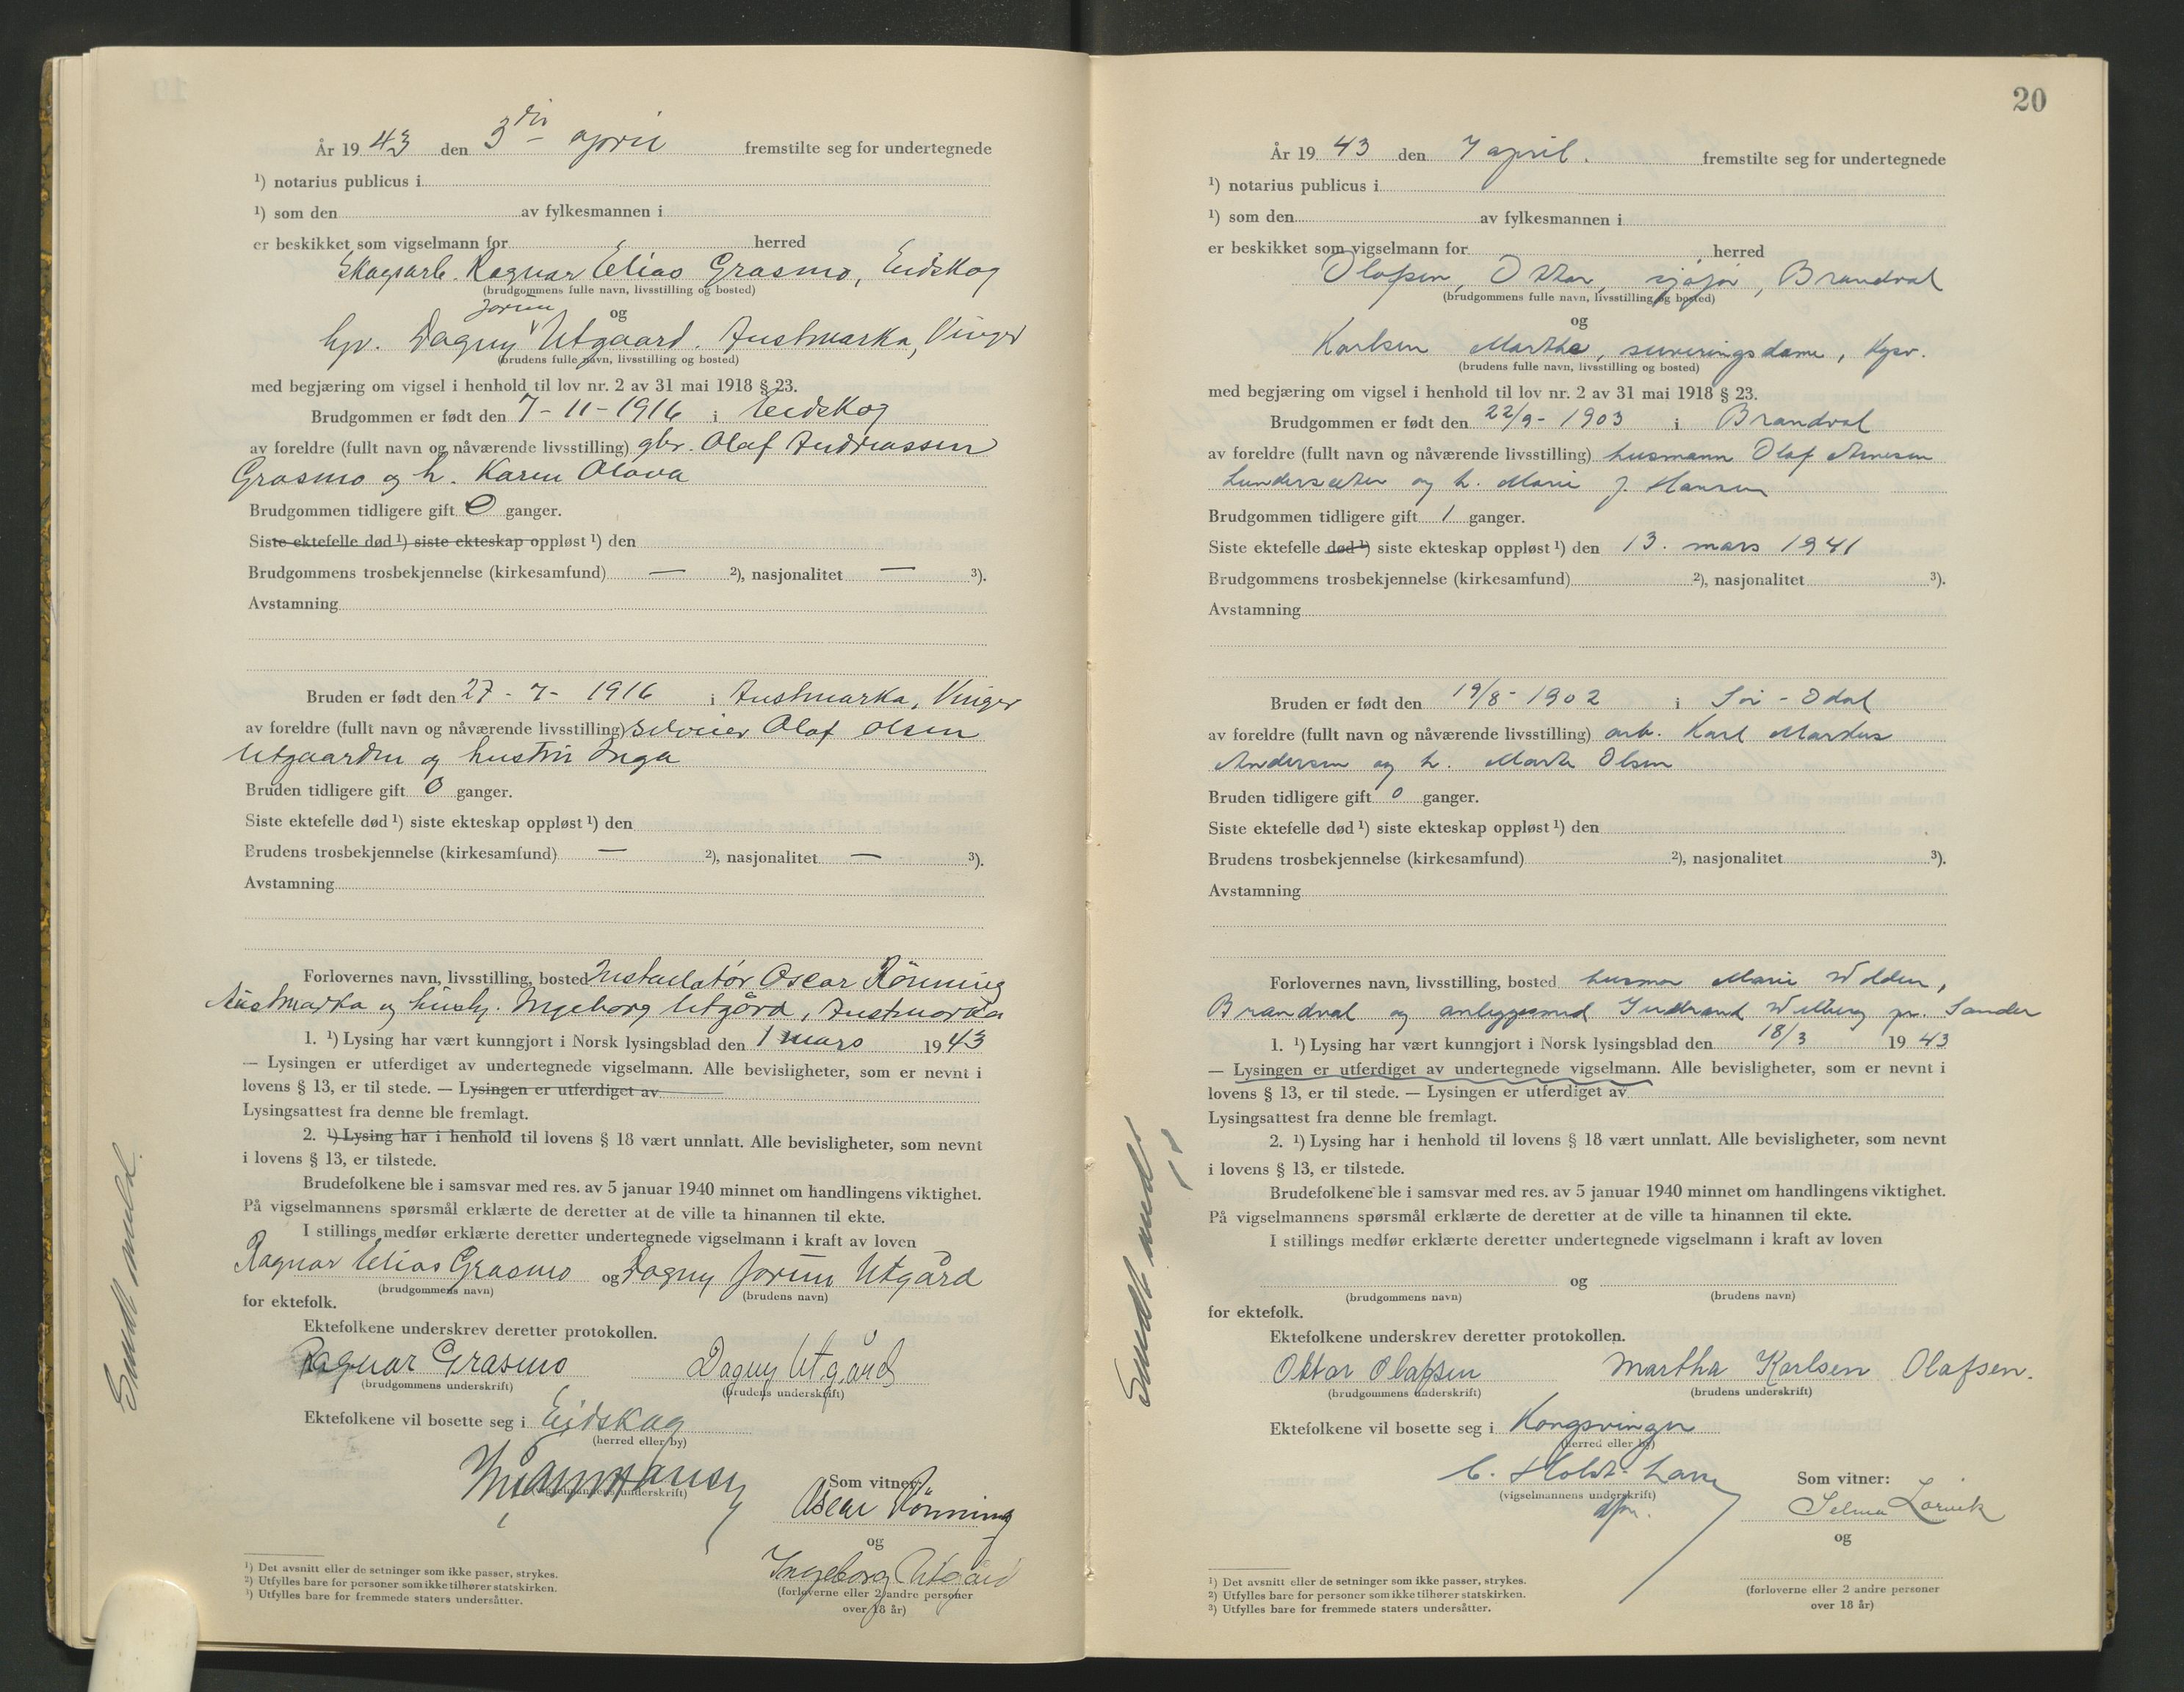 År 19 43 den 3die april fremstilte seg for undertegnede
¹) notarius publicus i
¹) som den av fylkesmannen i
er beskikket som vigselmann for herred
Skogsarb. Ragnar Elias Grasmo, Eidskog
(brudgommens fulle navn, livsstilling og bosted)
Jorun
og
hp. Dagny Utgaard. Austmarka, Vinger
(brudens fulle navn, livsstilling og bosted)
med begjæring om vigsel i henhold til lov nr. 2 av 31 mai 1918 § 23.
Brudgommen er født den 7-11-1916 i Eidskog
av foreldre (fullt navn og nåværende livsstilling) gbr. Olaf Andreassen
Grasmo og h. Karen Olava
Brudgommen tidligere gift 0 ganger.
Siste ektefelle død ¹) siste ekteskap oppløst ¹) den
Brudgommens trosbekjennelse (kirkesamfund) — ²), nasjonalitet — ³).
Avstamning
Bruden er født den 27-7-1916 i Austmarka, Vinger
av foreldre (fullt navn og nåværende livsstilling) selveier Olaf Olsen
Utgaarden og hustru Inga
Bruden tidligere gift 0 ganger.
Siste ektefelle død ¹) siste ekteskap oppløst ¹) den
Brudens trosbekjennelse (kirkesamfund) — ²), nasjonalitet — ³).
Avstamning
Forlovernes navn, livsstilling, bosted Installatør Oscar Rönning
Austmarka og hushj. Ingeborg Utgård, Austmarka
1. ¹) Lysing har vært kunngjort i Norsk lysingsblad den 1 mars 19 43
— Lysingen er utferdiget av undertegnede vigselmann. Alle bevisligheter, som er nevnt i
lovens § 13, er til stede. — Lysingen er utferdiget av
Lysingsattest fra denne ble fremlagt.
2. ¹) Lysing har i henhold til lovens § 18 vært unnlatt. Alle bevisligheter, som nevnt
i lovens § 13, er tilstede.
Brudefolkene ble i samsvar med res. av 5 januar 1940 minnet om handlingens viktighet.
På vigselmannens spørsmål erklærte de deretter at de ville ta hinannen til ekte.
I stillings medfør erklærte deretter undertegnede vigselmann i kraft av loven
Ragnar Elias Grasmo og Dagny Jorun Utgård
(brudgommens navn) (brudens navn)
for ektefolk.
Ektefolkene underskrev deretter protokollen.
Ragnar Grasmo Dagny Utgård
(brudgommens underskrift) (brudens underskrift)
Ektefolkene vil bosette seg i Eidskog
(herred eller by)
Som vitner:
(vigselmannens underskrift)
Oscar Rönning
og
Ingeborg Utgård
(forloverne eller 2 andre personer
over 18 år)
¹) Det avsnitt eller de setninger som ikke passer, strykes.
²) Utfylles bare for personer som ikke tilhører statskirken.
³) Utfylles bare for fremmede staters undersåtter.
Sendt meld.
20
År 19 43 den 7 april. fremstilte seg for undertegnede
¹) notarius publicus i
¹) som den av fylkesmannen i
er beskikket som vigselmann for herred
Olafsen, Ottar, sjåfør, Brandval
(brudgommens fulle navn, livsstilling og bosted)
og
Karlsen Martha, serveringsdame, Kgsv.
(brudens fulle navn, livsstilling og bosted)
med begjæring om vigsel i henhold til lov nr. 2 av 31 mai 1918 § 23.
Brudgommen er født den 22/9-1903 i Brandval
av foreldre (fullt navn og nåværende livsstilling) husmann Olaf Arnesen
Lundersæter og h. Marie J. Hansen
Brudgommen tidligere gift 1 ganger.
Siste ektefelle død ¹) siste ekteskap oppløst ¹) den 13. mars 1941
Brudgommens trosbekjennelse (kirkesamfund) ²), nasjonalitet ³).
Avstamning
Bruden er født den 19/8-1902 i Sør-Odal
av foreldre (fullt navn og nåværende livsstilling) arb. Karl Markus
Andersen og h. Marte Olsen
Bruden tidligere gift 0 ganger.
Siste ektefelle død ¹) siste ekteskap oppløst ¹) den
Brudens trosbekjennelse (kirkesamfund) ²), nasjonalitet ³).
Avstamning
Forlovernes navn, livsstilling, bosted husmor Marie Wolden,
Brandval og pr. Sander
1. ¹) Lysing har vært kunngjort i Norsk lysingsblad den 18/3 19 43
— Lysingen er utferdiget av undertegnede vigselmann. Alle bevisligheter, som er nevnt i
lovens § 13, er til stede. — Lysingen er utferdiget av
Lysingsattest fra denne ble fremlagt.
2. ¹) Lysing har i henhold til lovens § 18 vært unnlatt. Alle bevisligheter, som nevnt
i lovens § 13, er tilstede.
Brudefolkene ble i samsvar med res. av 5 januar 1940 minnet om handlingens viktighet.
På vigselmannens spørsmål erklærte de deretter at de ville ta hinannen til ekte.
I stillings medfør erklærte deretter undertegnede vigselmann i kraft av loven
og
(brudgommens navn) (brudens navn)
for ektefolk.
Ektefolkene underskrev deretter protokollen.
Ottar Olafsen Martha Karlsen Olafsen.
(brudgommens underskrift) (brudens underskrift)
Ektefolkene vil bosette seg i Kongsvinger
(herred eller by)
C. Holst-Larsen Som vitner:
(vigselmannens underskrift)
Selma
og
(forloverne eller 2 andre personer
over 18 år)
¹) Det avsnitt eller de setninger som ikke passer, strykes.
²) Utfylles bare for personer som ikke tilhører statskirken.
³) Utfylles bare for fremmede staters undersåtter.
Sendt meld.